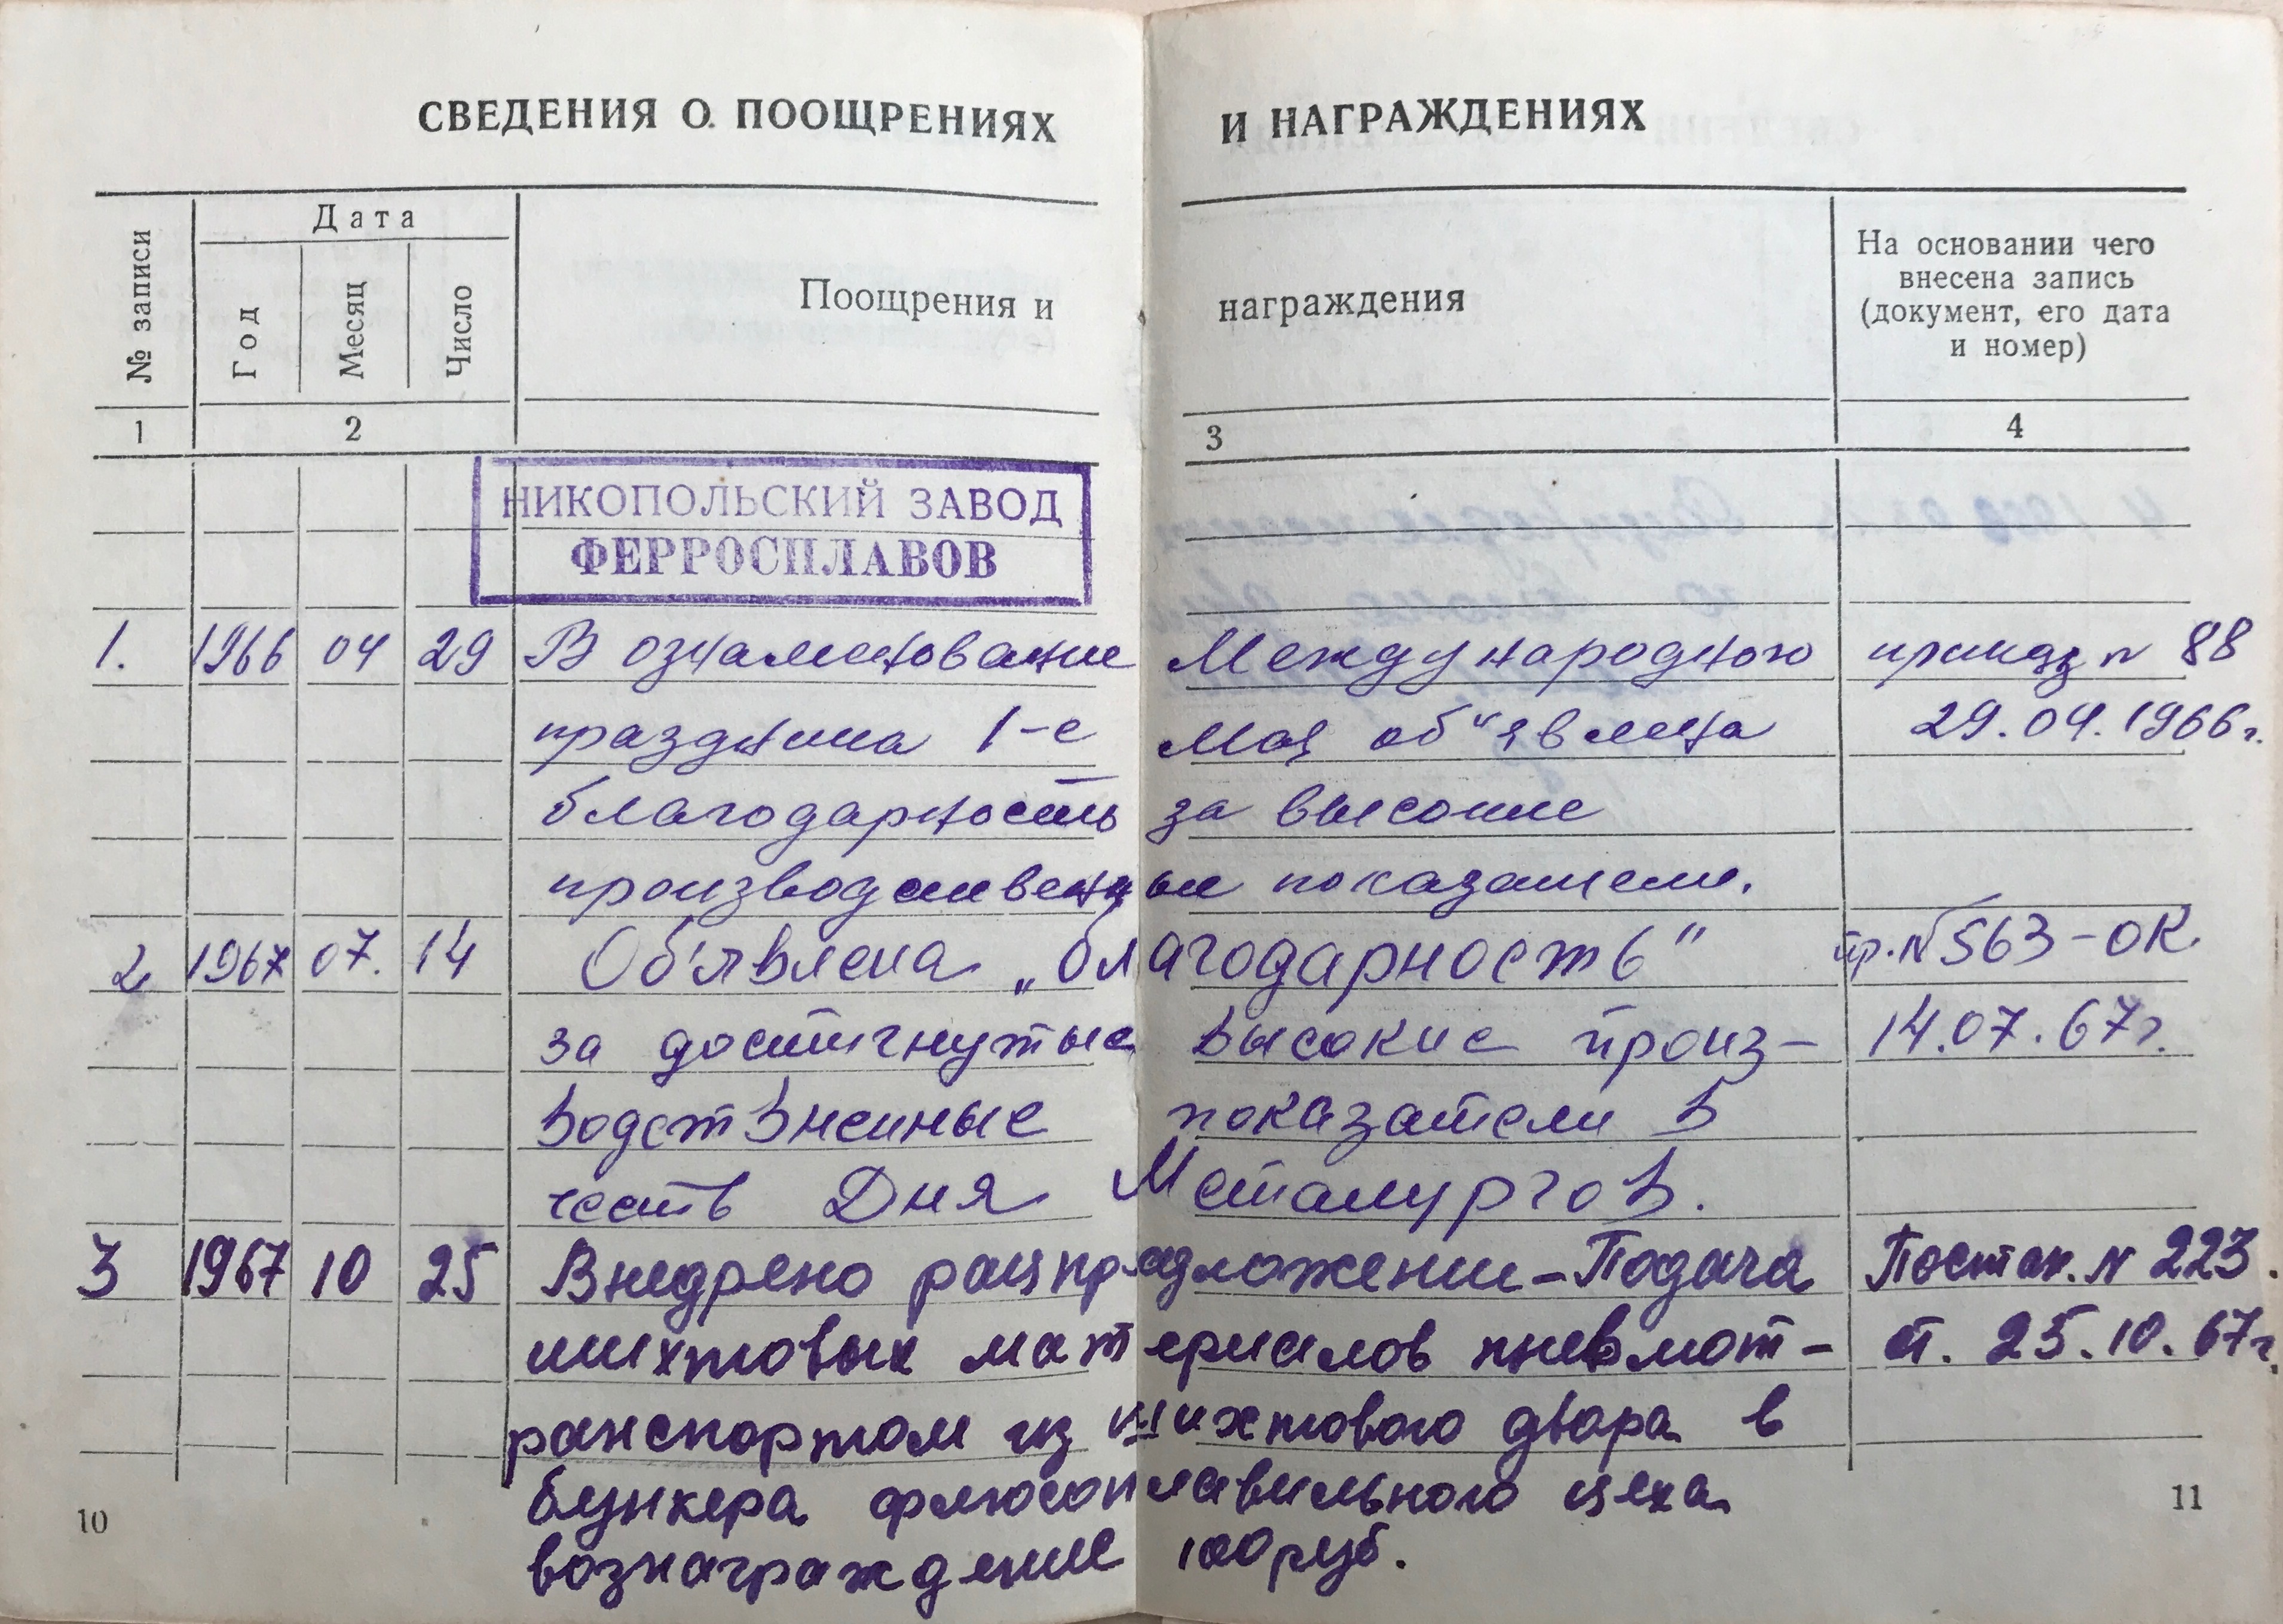 СВЕДЕНИЯ О ПООЩРЕНИЯХ И НАГРАЖДЕНИЯХ
№ записи
Дата
Год
Месяц
Число
Поощрения и награждения
На основании чего
внесена запись
(документ, его дата
и номер)
1 2 3 4
НИКОПОЛЬСКИЙ ЗАВОД
ФЕРРОСПЛАВОВ
1. 1966 04 29 В ознаменование Международного приказ № 88
праздника 1-е Мая об"явлена 29.04.1966г.
благодарность за высокие
производственные показатели.
2 1967 07. 14 Об'явлена „благодарность" пр. № 563-ОК.
за достигнутые высокие произ- 14.07.67г.
водственные показатели в
честь Дня Металургов.
3 1967 10 25 Внедрено рацпредложении - Подача Постан. № 223.
шихтовых материалов пневмот- от. 25.10.67г.
ранспортом из шихтового двора в
бункера флюсоплавильного цеха
вознаграждение 100 руб.
10 11